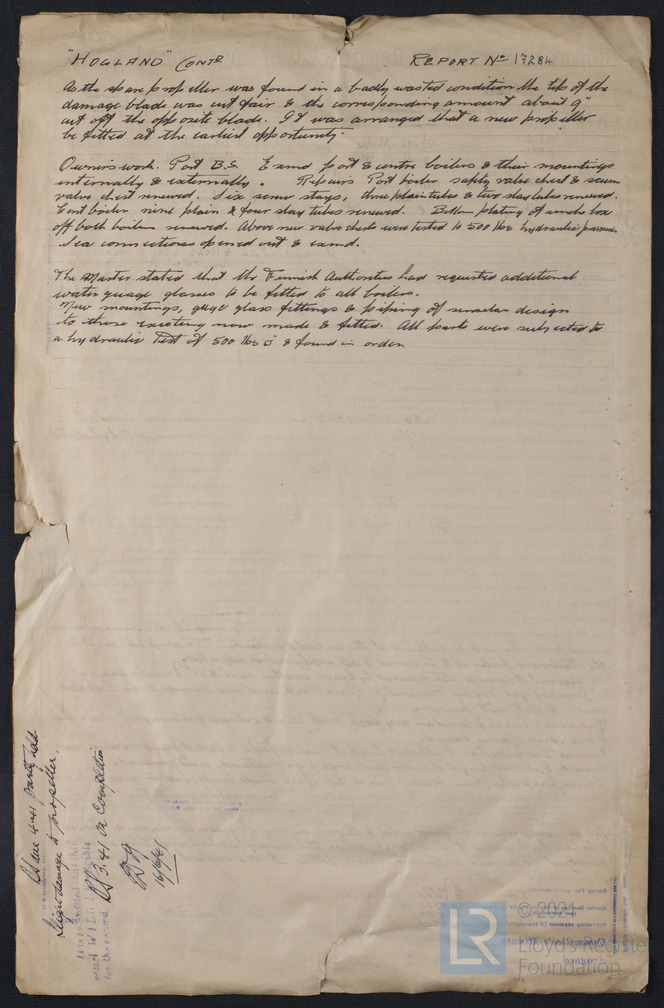 "HOGLAND" CONTD REPORT No 17284
As the spare propeller was found in a badly wasted condition the tip of the
damage blade was cut fair & the corresponding amount about 9"
cut off the opposite blade. It was arranged that a new propeller
be fitted at the earliest opportunity.
Owners work. Port B.S. Examd port & centre boilers & their mountings
internally & externally. Repairs Port boiler safety valve chest & scum
valve chest renewed. Six screw stays, three plain tubes & two stay tubes renewed.
Cent boiler nine plain & four stay tubes renewed. Bottom plating of smoke box
off both boilers renewed. Above new valve chests were tested to 500 lbs hydraulic pressure.
Sea connections opened out & examd.
The Master stated that the Finnish Authorities had requested additional
water guage glasses to be fitted to all boilers.
New mountings, guge glass fittings & piping of similar design
to those existing now made & fitted. All parts were subjected to
a hydraulic Test of 500 lbs □" & found in order.
BS due 4-41 Partly held.
Slight damage to propeller.
BS 3.41 on Completion
16/4/41
© 2021
LR
Lloyd's Register
Foundation